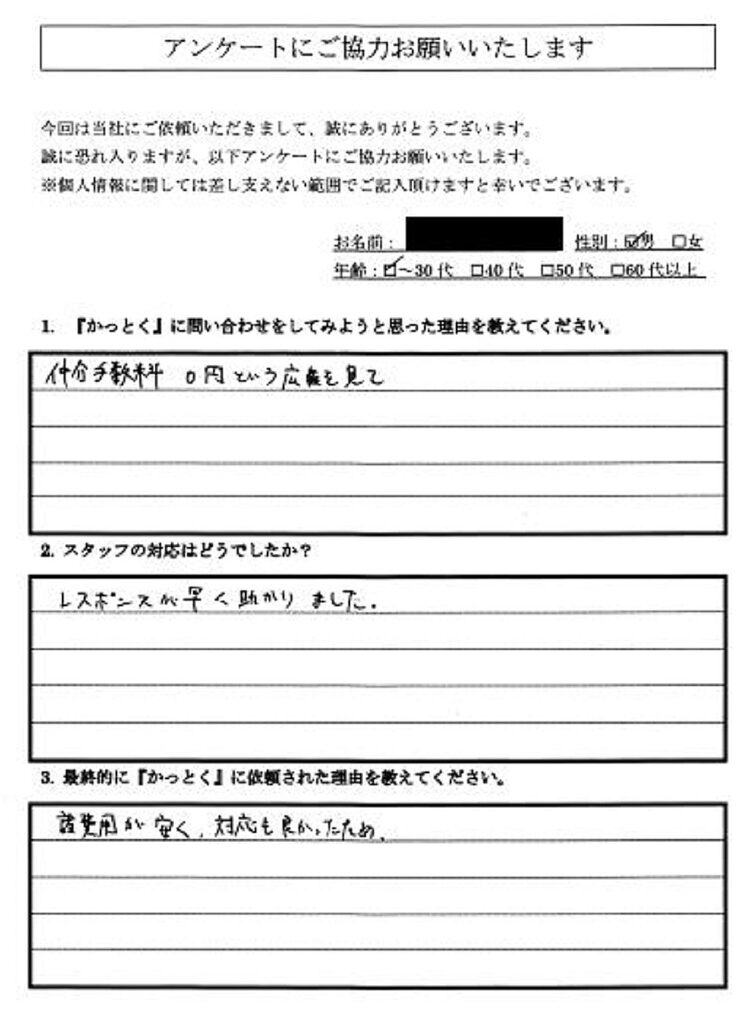 アンケートにご協力お願いいたします
今回は当社にご依頼いただきまして、誠にありがとうございます。
誠に恐れ入りますが、以下アンケートにご協力お願いいたします。
※個人情報に関しては差し支えない範囲でご記入頂けますと幸いでございます。
お名前： 性別：☑男 □女
年齢：☑～30代 □40代 □50代 □60代以上
1. 『かっとく』に問い合わせをしてみようと思った理由を教えてください。
仲介手数料 0円という広告を見て
2. スタッフの対応はどうでしたか？
レスポンスが早く助かりました。
3. 最終的に『かっとく』に依頼された理由を教えてください。
諸費用が安く、対応も良かったため。